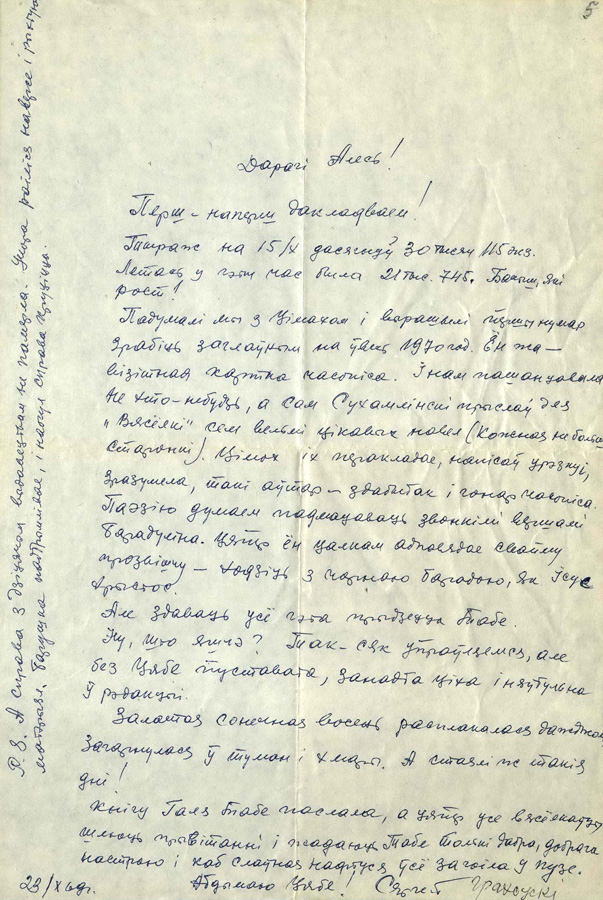 5
Дарагі Алесь!
Перш-наперш дакладваем!
Тыраж на 15/X дасягнуў 30 тысяч 115 экз.
Летась у гэты час было 21 тыс. 745. Бачыш, які
рост!
Падумалі мы з Цімохам і вырашылі першы нумар
зрабіць заглаўным на ўвесь 1970 год. Ён жа –
візітная картка часопіса. І нам пашанцавала
Не хто-небудзь, а сам Сухамлінскі прыслаў для
"Вясёлкі" сем вельмі цікавых навел (Кожная не больш
старонкі). Цімох іх перакладае, напісаў урэзку,
зразумела, такі аўтар – здабытак і гонар часопіса.
Паэзію думаем падмацаваць звонкімі вершамі
Барадуліна. Цяпер ён цалкам адпавядае свайму
прозвішчу – ходзіць з чорнаю барадою, як Ісус
Хрыстос.
Але здаваць усё гэта прыдзецца Табе.
Ну, што яшчэ? Так-сяк упраўляемся, але
без Цябе пуставата, занадта ціха і няўтульна
ў рэдакцыі.
Залатая сонечная восень расплакалася дажджом
загарнулася ў туман і хмары. А стаялі ж такія
дні!
Кнігу Галя Табе паслала, а цяпер усе вясёлкаўцы
шлюць прывітанні і жадаюць Табе толькі дабра, добрага
настрою і каб слаўная нафтуся ўсё загоіла ў пузе.
Абдымаю Цябе! Сяргей Грахоўскі
23/X 69г.
P.S. А справа з дзіцячым выдавецтвам не памерла. Учора раіліся наверсе і рыхтуюць
матэрыял. Барадушка падтрымлівае, і наогул справа круціцца.